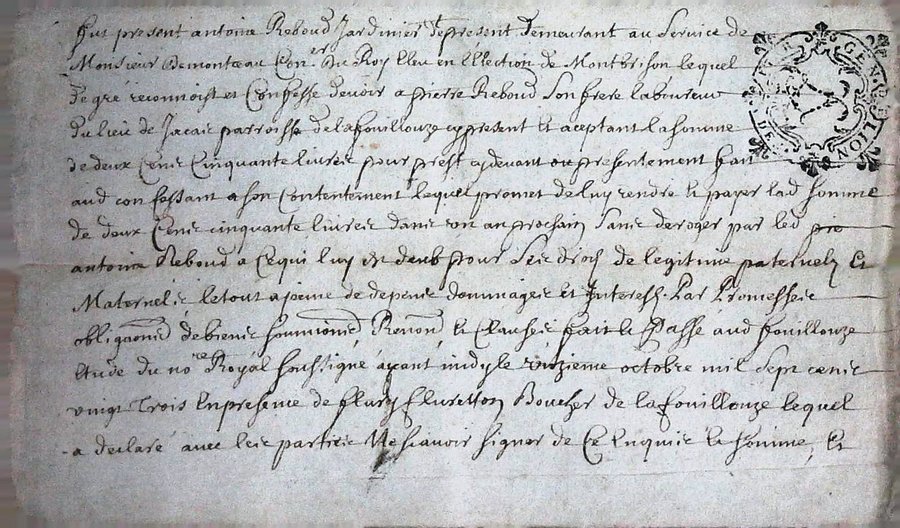 fut present antoine Reboud Jardinier de present demeurant au service de
Monsieur Demonteau Con.er Du Roy Eleu en Ellection de Montbrison lequel
de gré reconnoist et Confesse devoir a pierre Reboud son frere laboureur
du lieu de Jacas parroisse de lafouillouze cy present et aceptant la somme
de deux Cens Cinquante livres pour prest cydevant ou presentement fait
aud confessant a son Contentement lequel promet de luy rendre et payer lad somme
de deux Cens cinquante livres dans un an prochain sans deroger par led
antoine Reboud a Cequi luy est deub pour ses droits de legitime paternels et
Maternels, le tout a peine de depens dommages et Interests. Par Promesses
obligaons de biens soumions, Renonc et Clauses, fait et Passé aud fouillouze
etude du no.re Royal soussigné ayant midy le onzieme octobre mil sept cens
vingt trois En presence de fleury fleuretton Boucher de lafouillouze lequel
a declaré avec les parties Ne scavoir signer de Ce Enquis et somme, et
GEN DE LION